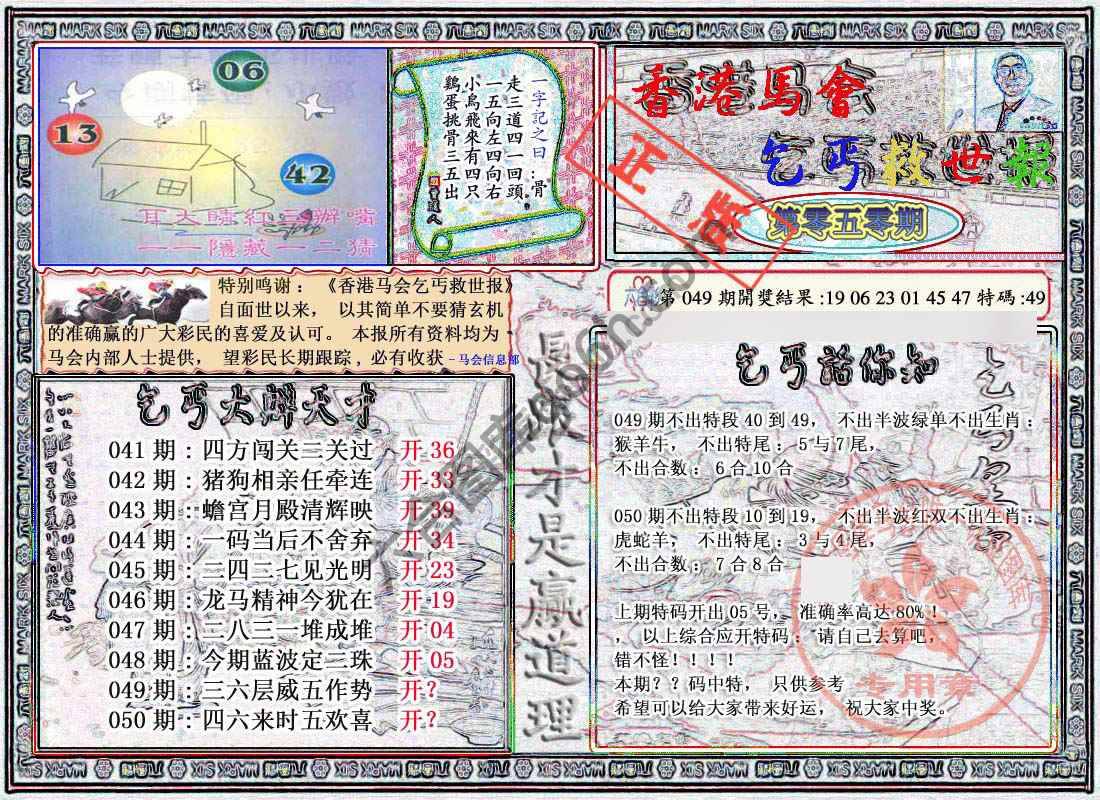 06
13
42
耳大睛紅三瓣嘴
一一隱藏一二猜
一字記之曰：骨
走三道四一回頭
一五向左四向右
小鳥飛來有四只
鷄蛋挑骨三五出
香港馬會
乞丐救世報
第零五零期
正
特别鸣谢：《香港马会乞丐救世报》
自面世以来， 以其简单不要猜玄机
的准确赢的广大彩民的喜爱及认可。 本报所有资料均为
马会内部人士提供， 望彩民长期跟踪，必有收获 -马会信息部
第 049 期開獎結果:19 06 23 01 45 47 特碼:49
乞丐大解天才
041 期：四方闯关三关过 开 36
042 期：猪狗相亲任牵连 开 33
043 期：蟾宫月殿清辉映 开 39
044 期：一码当后不舍弃 开 34
045 期：二四三七见光明 开 23
046 期：龙马精神今犹在 开 19
047 期：三八三一堆成堆 开 04
048 期：今期蓝波定二珠 开 05
049 期：三六层威五作势 开？
050 期：四六来时五欢喜 开？
才是赢道理
乞丐話你知
049 期不出特段 40 到 49， 不出半波绿单不出生肖：
猴羊牛， 不出特尾：5 与 7 尾，
不出合数：6 合 10 合
050 期不出特段 10 到 19， 不出半波红双不出生肖：
虎蛇羊， 不出特尾：3 与 4 尾，
不出合数：7 合 8 合
上期特码开出 05 号， 准确率高达 80%！
， 以上综合应开特码：请自己去算吧，
错不怪！！！！
本期？？码中特， 只供参考
希望可以给大家带来好运， 祝大家中奖。
专用章